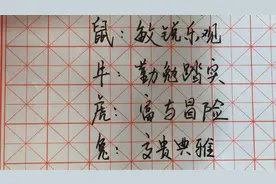 鼠：敏锐乐观
牛：勤勉踏实
虎：富与冒险
兔：高贵典雅